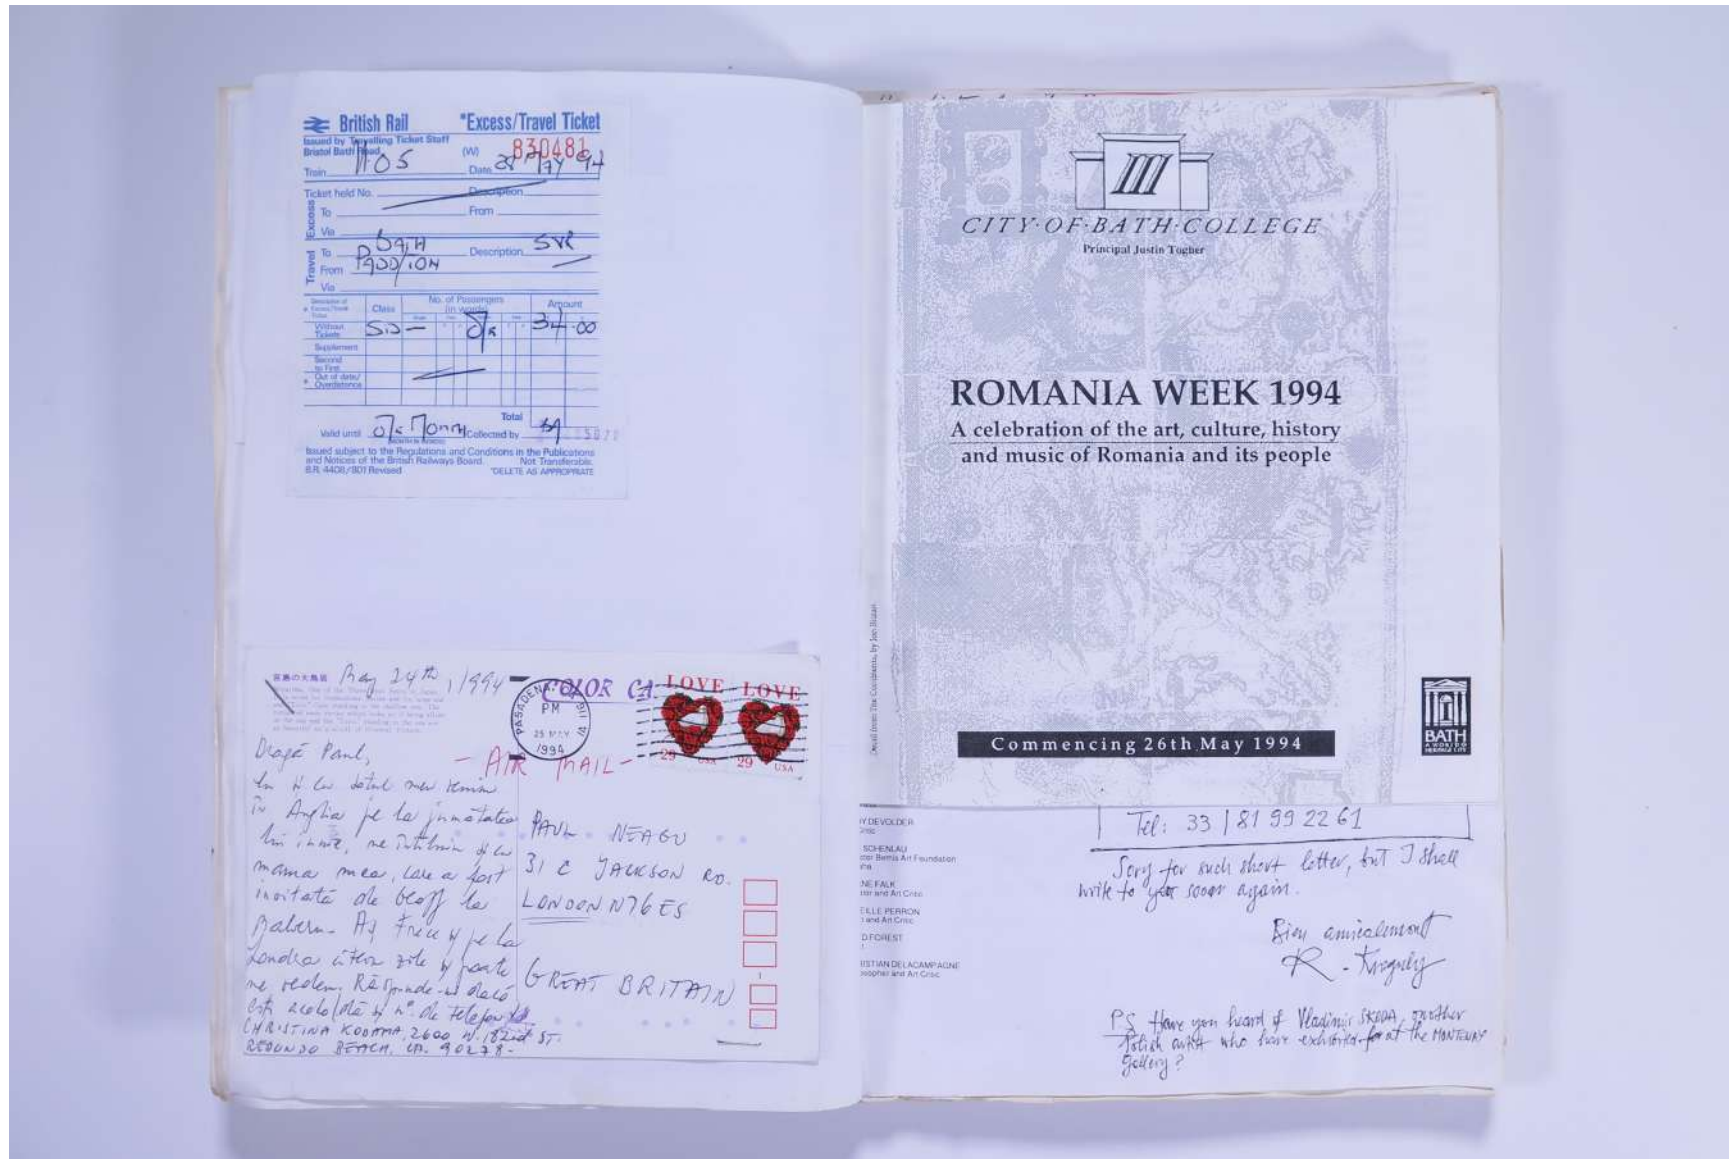 British Rail
*Excess/Travel Ticket
Issued by Travelling Ticket Staff
Bristol Bath Road
(W) 830481
Train 1105 Date 28 May 94
Ticket held No. Description
Excess
To From
Via
Travel
To BATH Description SVR
From PADD/TON
Via
Description of
Excess/Travel
Ticket
Class
No. of Passengers
(in words)
Amount
Without
Tickets
STD — 34.00
Supplement
Second
to First
* Out of date/
Overdistance
Total
Valid until Month Collected by
Issued subject to the Regulations and Conditions in the Publications
and Notices of the British Railways Board. Not Transferable.
B.R. 4408/801 Revised *DELETE AS APPROPRIATE
宮島の大鳥居
May 24th, 1994
COLOR CA
PASADENA
PM
25 MAY
1994
LOVE LOVE
29 USA 29 USA
- AIR MAIL -
Dragă Paul,
Eu și cu soțul meu venim
în Anglia pe la jumătatea
lui iunie, ne întâlnim și cu
mama mea, care a fost
invitată de Geoff la
Malvern. Aș trece și pe la
Londra câteva zile și poate
ne vedem. Răspunde-mi dacă
ești acolo/dă și nº. de telefon
CHRISTINA KODAMA, 2600 W. 182nd ST.
REDONDO BEACH, CA. 90278-
PAUL NEAGU
31 C JACKSON RD.
LONDON N76ES
GREAT BRITAIN
CITY·OF·BATH·COLLEGE
Principal Justin Togher
ROMANIA WEEK 1994
A celebration of the art, culture, history
and music of Romania and its people
Commencing 26th May 1994
BATH
A WORLD
HERITAGE CITY
Y DEVOLDER
SCHENLAU
Bemis Art Foundation
NE FALK
and Art Critic
EILLE PERRON
and Art Critic
D FOREST
ISTIAN DELACAMPAGNE
osopher and Art Critic
Tel: 33 / 81 99 22 61
Sory for such short letter, but I shall
write to you soon again.
Bien amicalement
R.
PS Have you heard of Vladimir SKODA, another
Polish artist who have exhibited for at the MONTENAY
gallery?